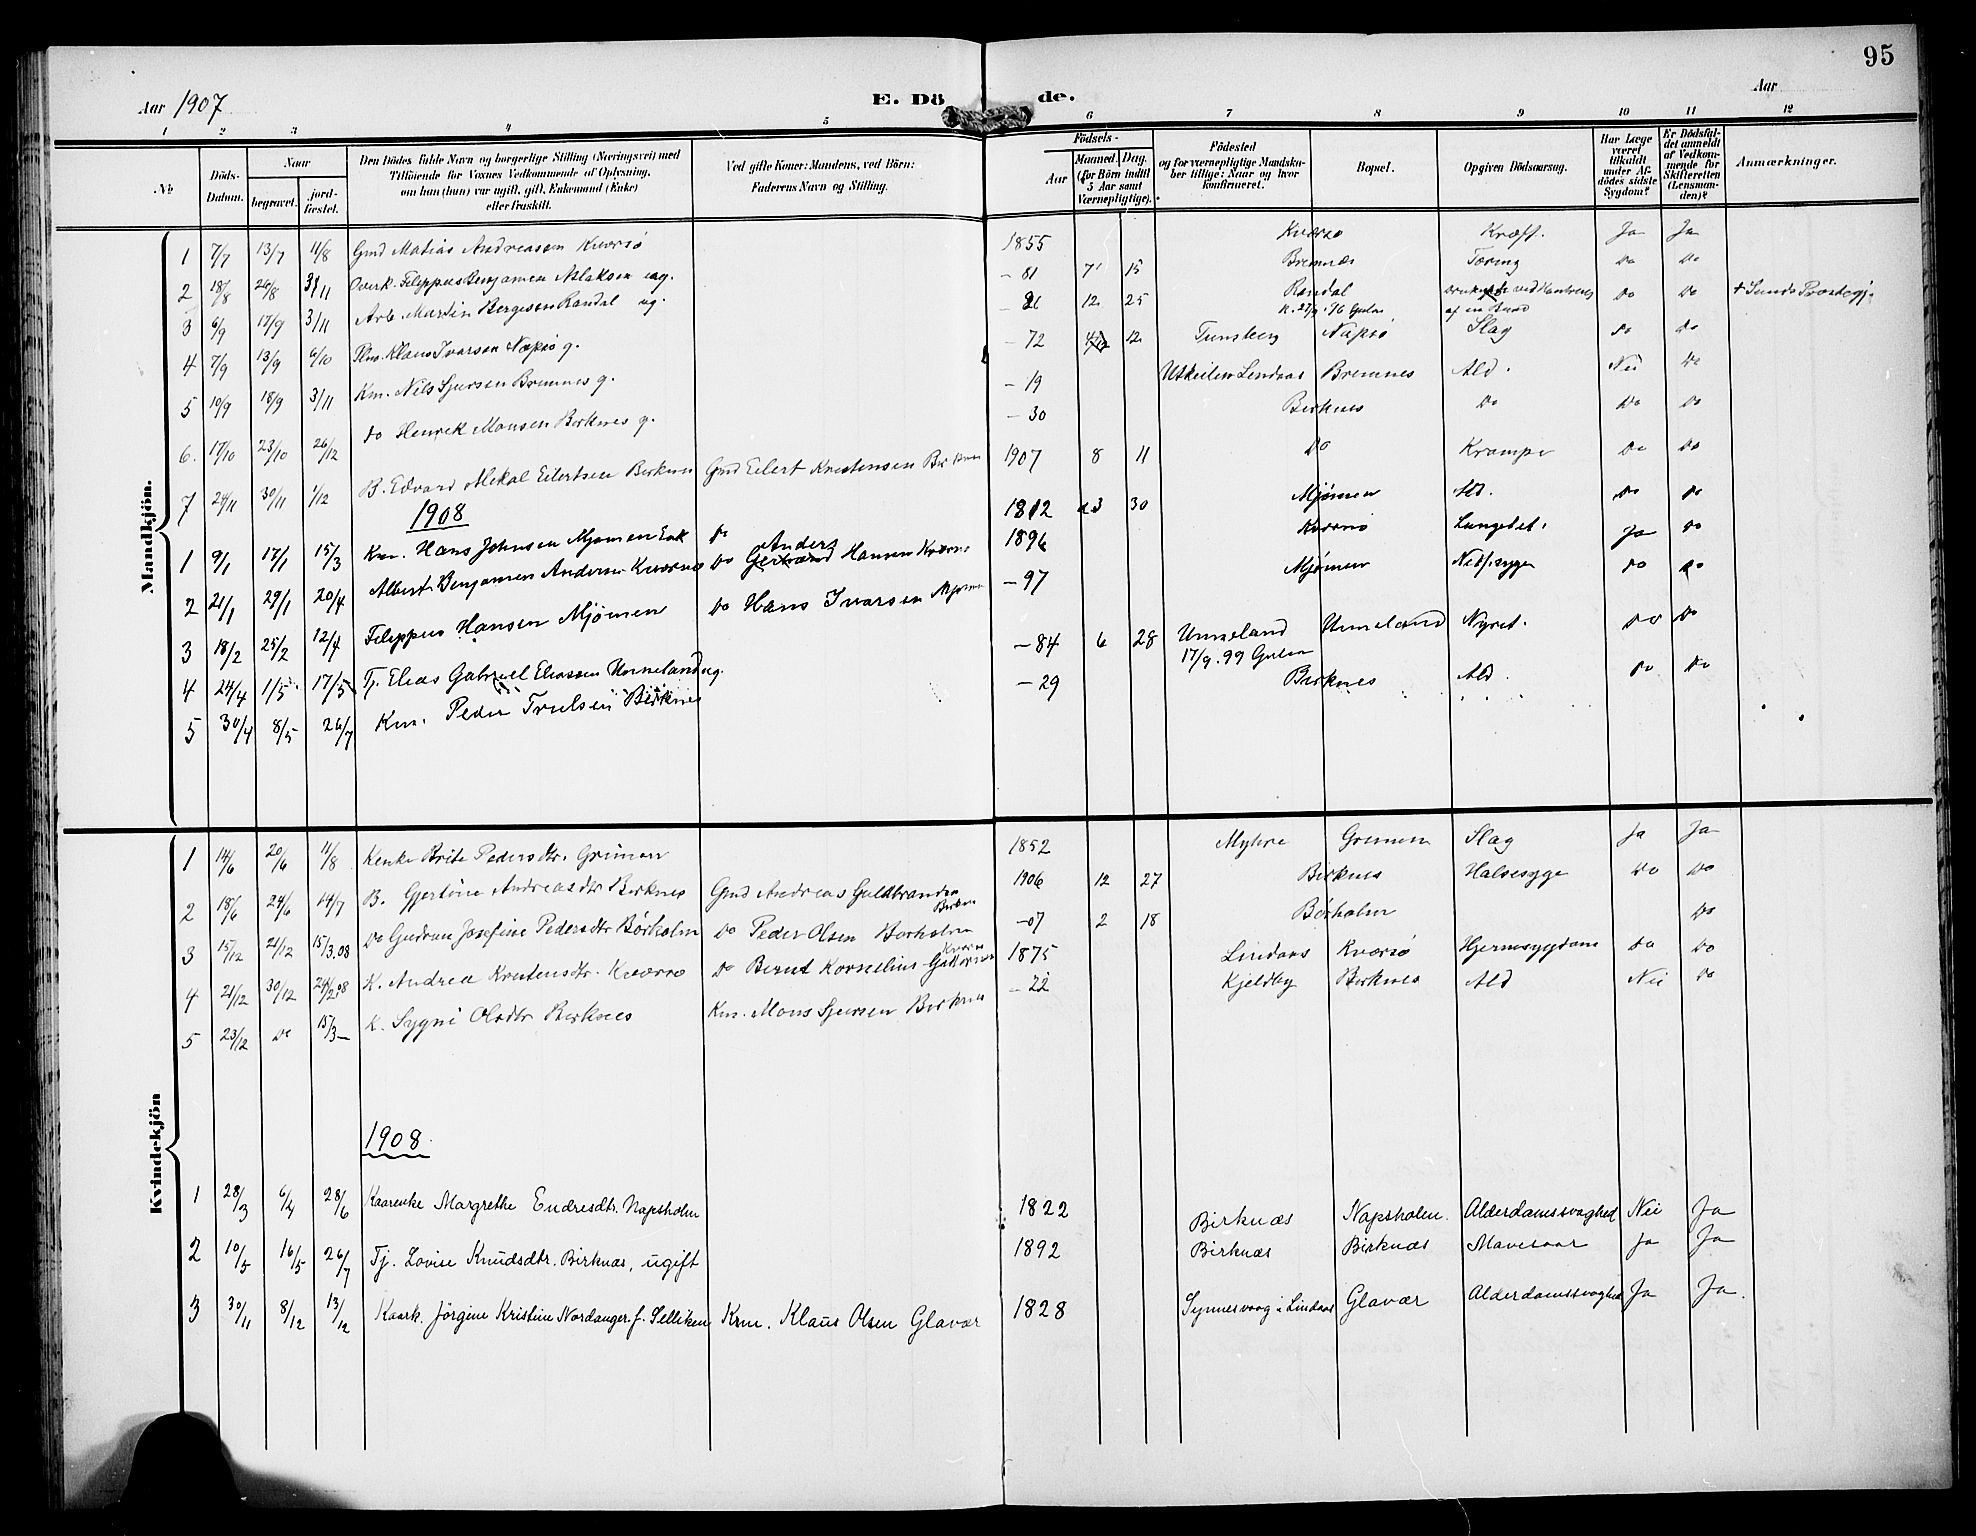 95
Aar 1907
E. Dö de.
Aar
1 2 3 4 5 6 7 8 9 10 11 12
No
Döds-Datum.
Naar
begravet.
jord-fæstet.
Den Dödes fulde Navn og borgerlige Stilling (Næringsvei) med
Tilföiende for Voxnes Vedkommende af Oplysning,
om han (hun) var ugift, gift, Enkemand (Enke)
eller fraskilt.
Ved gifte Koner: Mandens, ved Börn:
Faderens Navn og Stilling.
Födsels-
Aar
Maaned. Dag.
(for Börn indtil
5 Aar samt
Værnepligtige).
Födested
og for værnepligtige Mandska-
ber tillige: Naar og hvor
konfirmeret.
Bopæl.
Opgiven Dödsaarsag.
Har Læge
været
tilkaldt
under Af-
dödes sidste
Sygdom?
Er Dödsfal-
det anmeldt
af Vedkom-
mende for
Skifteretten
(Lensman-
den)?
Anmærkninger.
Mandkjön.
1 7/7 13/7 11/8 Gmd Matias Andreasen Kværnø 1855 Kværnø Kræft. Ja Ja
2 18/8 26/8 3/11 Filippus Benjamen Aslaksen ug. -81 7 15 Bremnes Tæring Do Do
3 6/9 17/9 3/11 Arb. Martin Bergesen Randal ug. 12 25 Randal ved Do Do
K. 27/9 96 Gulen
4 7/9 13/9 6/10 Klaus Ivarsen Napsø g. -72 12 Tunsberg Napsø Slag Do Do
5 10/9 18/9 3/11 Km. Nils Sjursen Bremnes g. -19 Lindaas Bremnes Ald. Nei Do
6. 17/10 23/10 26/12 Do Henrik Monsen Birknes g. -30 Birknes Do Do Do
7 24/11 30/11 1/12 B. Edvard Mekal Eilertsen Birknes Gmd Eilert Kristensen Birknes 1907 8 11 Do Krampe Do Do
1908
1 9/1 17/1 15/3 Km. Hans Johnsen Mjømen Enk Do 1812 30 Mjømen Ald. Do Do
2 21/1 29/1 20/4 Albert Benjamen Andersen Kværnø Do Anders Hansen Kværnø 1896 Kværnø Lungebet. Ja Do
3 18/2 25/2 12/4 Filippus Hansen Mjømen Do Hans Ivarsen Mjømen -97 Mjømen Do Do
4 24/4 1/5 17/5 Tj. Elias Gabriel Eliassen Unneland ug. -84 6 28 Unneland Unneland Nyret. Do Do
17/9. 99 Gulen
5 30/4 8/5 26/7 Km. Peder Trulsen Birknes -29 Birknes Ald. Do Do
Kvindekjön
1 14/6 20/6 11/8 Kenke Brite Pedersdtr. Grimen 1852 Myhre Grimen Slag Ja Ja
2 18/6 24/6 14/7 B. Gjertine Andreasdtr Birknes Gmd Andreas Guldbrandsen Birknes 1906 12 27 Birknes Halsesyge Do Do
3 15/12 21/12 15/3.08 Do Gudrun Josefine Pedersdtr Børholm Do Peder Olsen Børholm -07 2 18 Børholm Do
4 21/12 30/12 24/2.08 K. Andrea Kristensdtr. Kværnø Do Bernt Kornelius Kværnø 1875 Lindaas Kværnø Hjernesygdom Do Do
5 23/12 Do 15/3- K. Sygni Olsdtr Birknes Km. Mons Sjursen Birknes -22 Kjeldby Birknes Ald Nei Do
1908.
1 28/3 6/4 28/6 Kaarenke Margrethe Endresdtr. Napsholm 1822 Birknæs Napsholm. Alderdomssvaghed Nei Ja
2 10/5 16/5 26/7 Tj. Lovise Knudsdtr. Birknæs, ugift 1892 Birknæs Birknæs Mavesaar Ja Ja
3 30/11 8/12 13/12 Kaark. Jörgine Kristine Nordanger f.Selliken Krm. Klaus Olsen Glavær 1828 Synnesvaag i Lindaas Glavær Alderdomssvaghed Ja Ja.